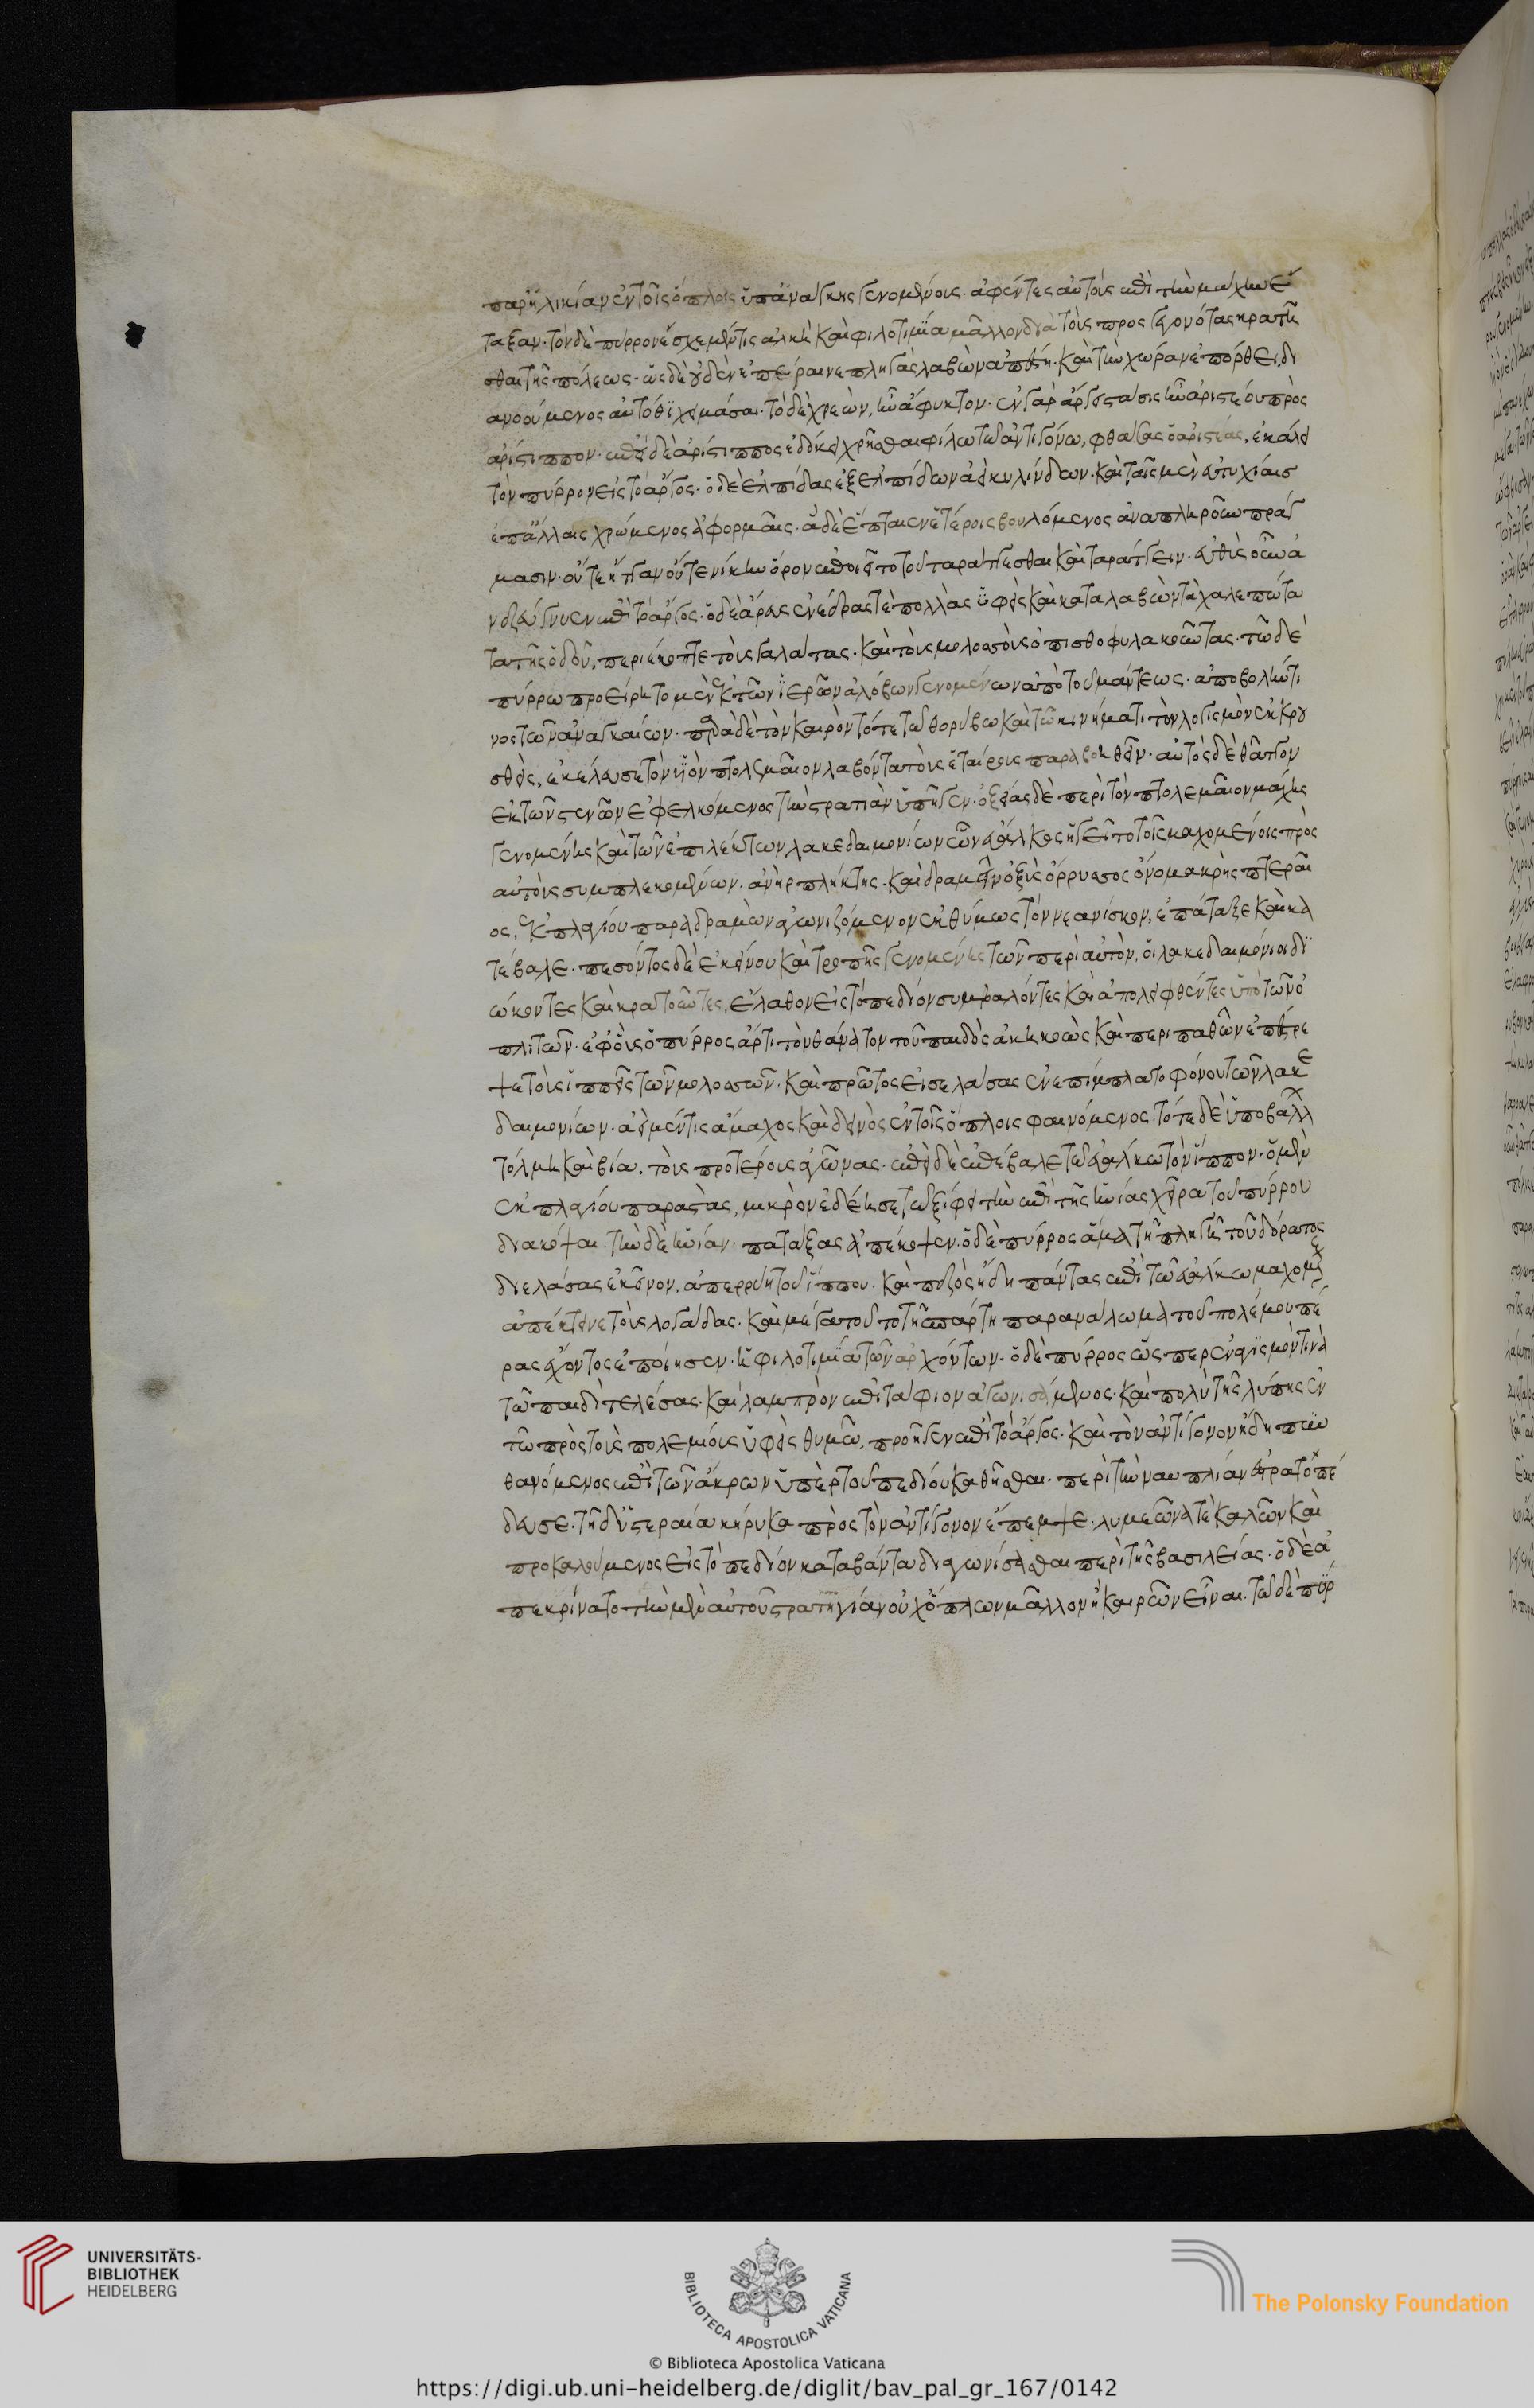 παρηλικίαν ἐν τοῖς ὅπλοις ὑπ' ἀνάγκης γενομένοις. ἀφέντες αὐτοὺς ἐπὶ τὴν μάχην ἔ
ταξαν. τὸν δὲ πύρρον ἔσχε μέν τις ἀλκὴ καὶ φιλοτιμία μᾶλλον διὰ τοὺς προσγεγονότας κρατῆ
σθαι τῆς πόλεως. ὡς δὲ οὐδὲν ἐπέραινε πληγὰς λαβὼν ἀπέστη. καὶ τὴν χώραν ἐπόρθει, δι
ανοούμενος αὐτόθι χειμάσαι. τὸ δὲ χρεὼν, ἦν ἄφυκτον. ἐν γὰρ ἄργει στάσις ἦν ἀριστέου πρὸς
ἀρίστιππον. ἐπεὶ δὲ ἀρίστιππος ἐδόκει χρῆσθαι φίλω τῶ ἀντιγόνω, φθάσας ὁ ἀριστέας, ἐκάλει
τὸν πύρρον εἰς τὸ ἄργος. ὁ δὲ ἐλπίδας ἐξ ἐλπίδων ἀεὶ κυλίνδων. καὶ ταῖς μὲν εὐτυχίαις
ἐπ' ἄλλαις χρώμενος ἀφορμαῖς. ἃ δὲ ἔπταιεν ἑτέροις βουλόμενος ἀναπληροῦν πράγ
μασιν. οὔτε ἧτταν οὔτε νίκην ὅρον ἐποιεῖτο τοῦ ταράττεσθαι καὶ ταράττειν. εὐθὺς οὖν ἀ
νεζεύγνυεν ἐπὶ τὸ ἄργος. ὁ δὲ ἄρευς ἐνέδρας τὲ πολλὰς ὑφεὶς καὶ καταλαβὼν τὰ χαλεπώτα
τα τῆς ὁδοῦ, περιέκοπτε τοὺς γαλάτας. καὶ τοὺς μολοσσοὺς ὀπισθοφυλακοῦντας. τῶ δὲ
πύρρω προείρητο μὲν ἐκ τῶν ἱερῶν ἀλόβων γενομένων ἀπὸ τοῦ μάντεως. ἀποβολή τι
νος τῶν ἀναγκαίων. παρὰ δὲ τὸν καιρὸν τότε τῶ θορύβω καὶ τῶ κινήματι τὸν λογισμὸν ἐκκρου
σθεὶς, ἐκέλευσε τὸν υἱὸν πτολεμαῖον λαβόντα τοὺς ἑταίρους παραβοηθεῖν. αὐτὸς δὲ θᾶττον
ἐκ τῶν στενῶν ἐφελκόμενος τὴν στρατιὰν ὑπῆγεν. ὀξείας δὲ περὶ τὸν πτολεμαῖον μάχης
γενομένης καὶ τῶν ἐπιλέκτων λακεδαιμονίων ὧν εὔαλκος ἡγεῖτο τοῖς μαχομένοις πρὸς
αὐτοὺς συμπλεκομένων. ἀνὴρ πλήκτης. καὶ δραμεῖν ὀξὺς ὄρρυσσος ὄνομα κρὴς ἀπτεραῖ
ος, ἐκ πλαγίου παραδραμὼν ἀγωνιζόμενον ἐκθύμως τὸν νεανίσκον, ἐπάταξε καὶ κα
τέβαλε. πεσόντος δὲ ἐκείνου καὶ τροπῆς γενομένης τῶν περὶ αὐτὸν, οἱ λακεδαιμόνιοι δι
ώκοντες καὶ κρατοῦντες, ἔλαθον εἰς τὸ πεδίον συμβαλόντες καὶ ἀπολειφθέντες ὑπὸ τῶν ὁ
πλιτῶν. ἐφ' οὓς ὁ πύρρος ἄρτι τὸν θάνατον τοῦ παιδὸς ἀκηκοὼς καὶ περιπαθῶν ἐπέστρε
ψε τοὺς ἱππεῖς τῶν μολοσσῶν. καὶ πρῶτος εἰσελάσας ἐνεπίμπλατο φόνου τῶν λακε
δαιμονίων. ἀεὶ μέν τις ἄμαχος καὶ δεινὸς ἐν τοῖς ὅπλοις φαινόμενος. τότε δὲ ὑπερβάλλ
τόλμη καὶ βία. τοὺς προτέρους ἀγῶνας. ἐπεὶ δὲ ἐπέβαλε τῶ εὐάλκω τὸν ἵππον. ὁ μὲν
ἐκ πλαγίου παραστὰς, μικρὸν ἐδέησε τῶ ξίφει τὴν ἐπὶ τῆς ἡνίας χεῖρα τοῦ πύρρου
διακόψαι. τὴν δὲ ἡνίαν. πατάξας ἀπέκοψεν. ὁ δὲ πύρρος ἅμα τῆ πληγῆ τοῦ δόρατος
διελάσας ἐκεῖνον. ἀπερρύη τοῦ ἵππου. καὶ πεζὸς ἤδη πάντας ἐπὶ τῶ εὐάλκω μαχομένους
ἀπέκτεινε τοὺς λογάδας. καὶ μέγα τοῦτο τῆ σπάρτη παρανάλωμα τοῦ πολέμου πέ
ρας ἔχοντος ἐποίησεν. ἡ φιλοτιμία τῶν ἀρχόντων. ὁ δὲ πύρρος ὥσπερ ἐναγισμόν τινα
τῶ παιδὶ τελέσας. καὶ λαμπρὸν ἐπιτάφιον ἀγωνισάμενος. καὶ πολὺ τῆς λύπης ἐν
τῶ πρὸς τοὺς πολεμίους ὑφεὶς θυμῶ, προῆγεν ἐπὶ τὸ ἄργος. καὶ τὸν ἀντίγονον ἤδη πυν
θανόμενος ἐπὶ τῶν ἄκρων ὑπὲρ τοῦ πεδίου καθῆσθαι. περὶ τὴν ναυπλίαν ἐστρατοπέ
δευσε. τῆ δ' ὑστεραία κήρυκα πρὸς τὸν ἀντίγονον ἔπεμψε. λυμεῶνα τὲ καλῶν καὶ
προκαλούμενος εἰς τὸ πεδίον καταβάντα διαγωνίσασθαι περὶ τῆς βασιλείας. ὁ δὲ ἀ
πεκρίνατο τὴν μὲν αὐτοῦ στρατηγίαν οὐχ ὅπλων μᾶλλον ἢ καιρῶν εἶναι. τῶ δὲ πύρ
UNIVERSITÄTS-
BIBLIOTHEK
HEIDELBERG
BIBLIOTECA APOSTOLICA VATICANA
The Polonsky Foundation
© Biblioteca Apostolica Vaticana
https://digi.ub.uni-heidelberg.de/diglit/bav_pal_gr_167/0142